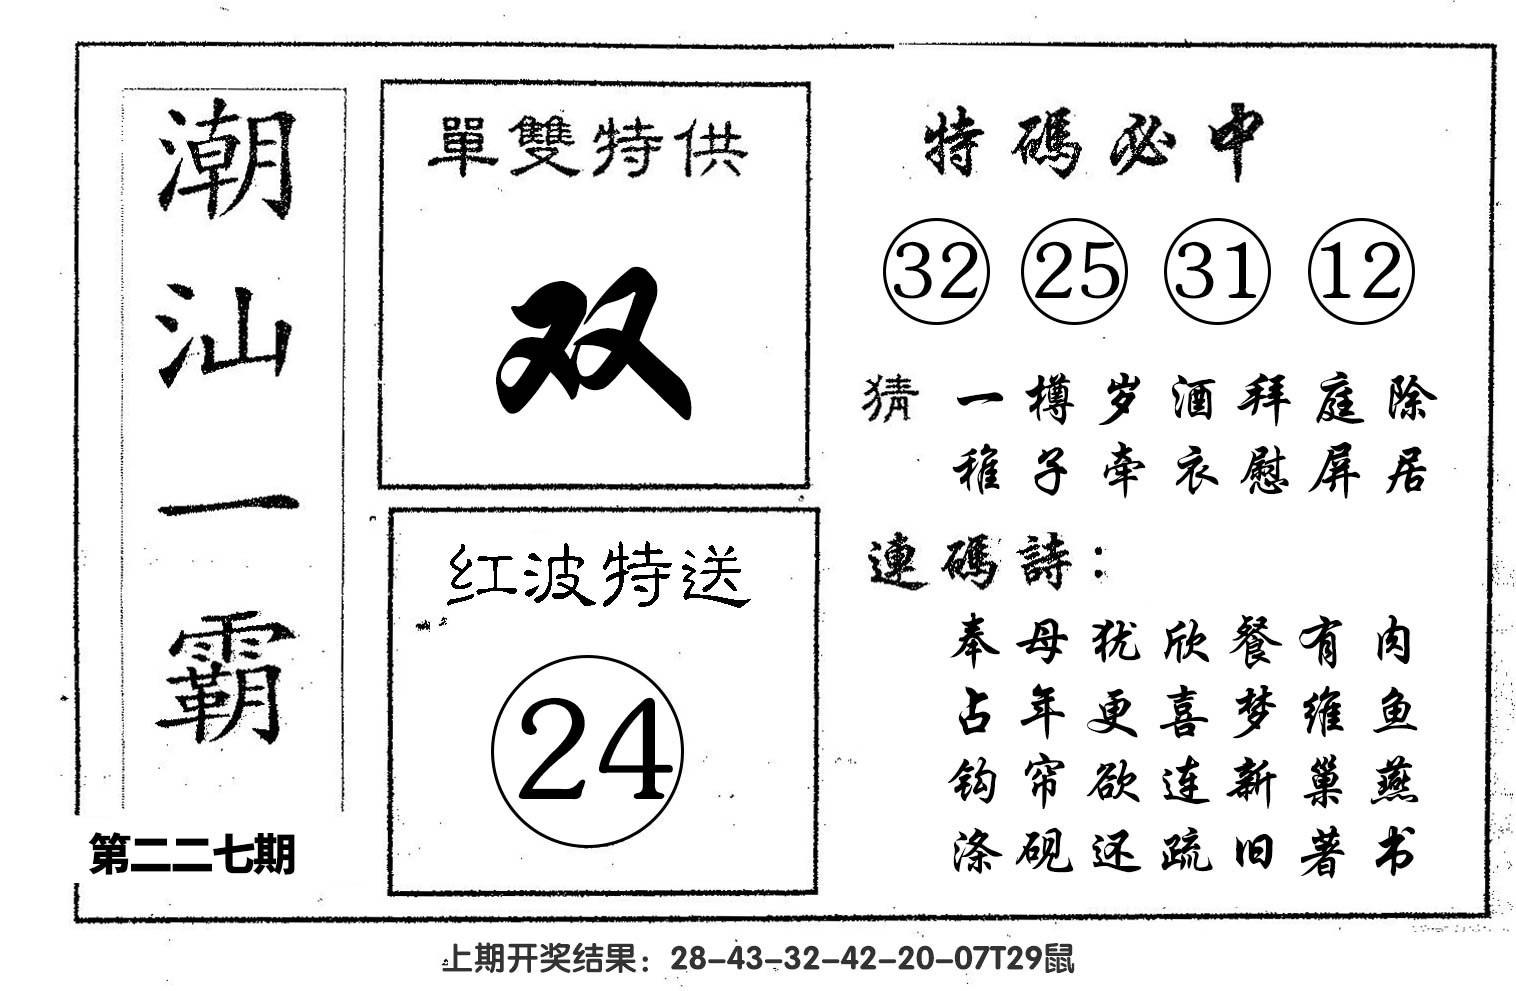 潮汕一霸
第二二七期
單雙特供
双
红波特送
24
特碼必中
32 25 31 12
猜 一樽岁酒拜庭除
稚子牵衣慰屏居
連碼詩：
奉母犹欣餐有肉
占年更喜梦维鱼
钩帘欲连新巢燕
涤砚还疏旧著书
上期开奖结果：28-43-32-42-20-07T29鼠